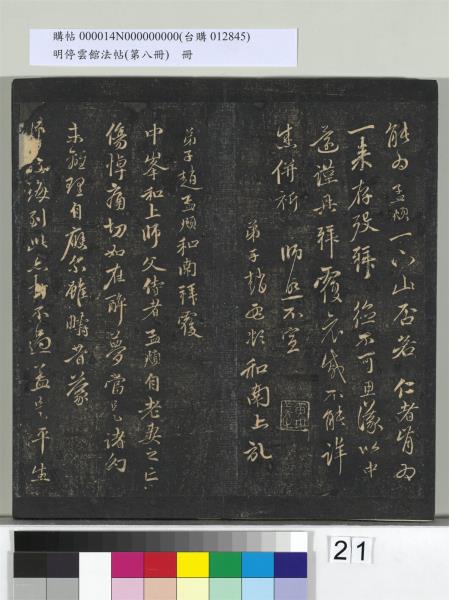 購帖 000014N000000000(台購 012845)
明停雲館法帖(第八冊) 冊
能為孟頫一下山否若 仁者肯為
一来存歿拜 德不可思議以中
甚謹具拜覆哀感不能詳
悉併祈 師 不宣
弟子趙孟頫和南上記
弟子趙孟頫和南拜覆
中峯和上師父侍者孟頫自老妻之亡
傷悼痛切如在醉夢當是諸幻
未離理自應尔雖疇昔蒙
師 誨到此亦 不過蓋是平生
21